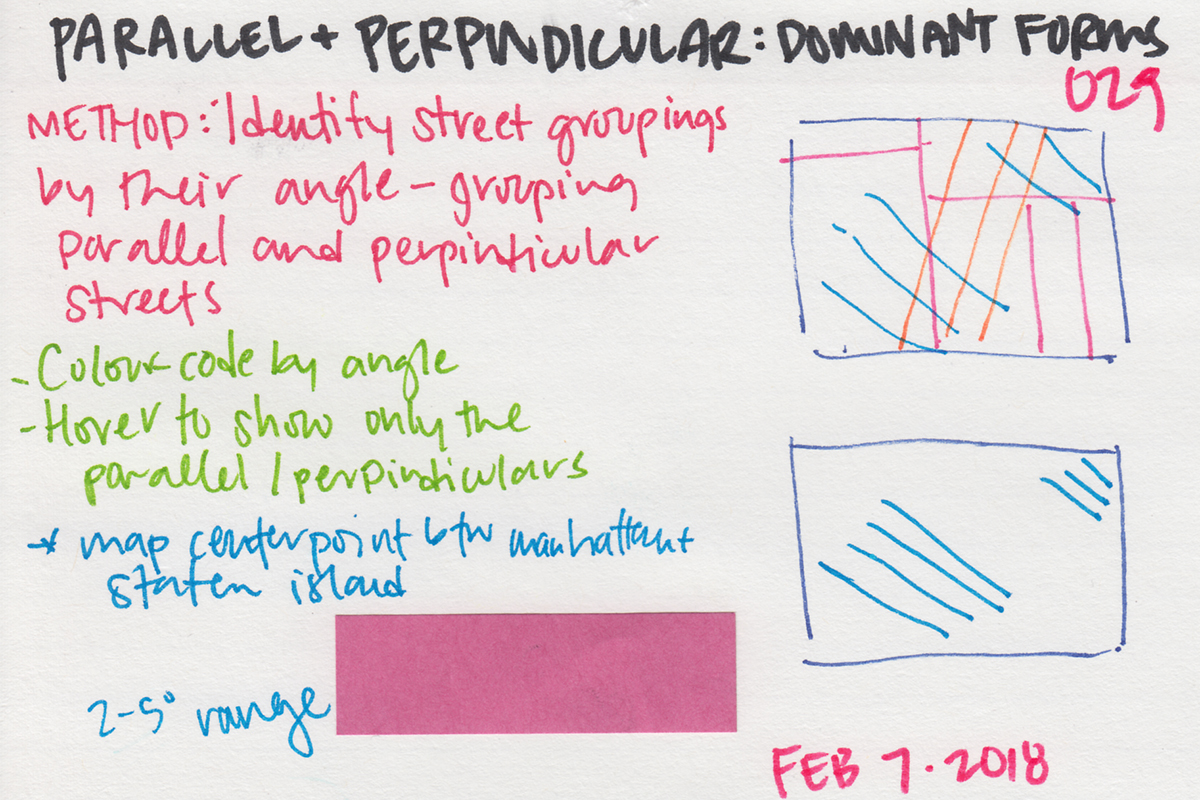 PARALLEL + PERPINDICULAR: DOMINANT FORMS
029
METHOD: Identify street groupings
by their angle - grouping
parallel and perpinticular
streets
- Colour code by angle
- Hover to show only the
parallel / perpinticulars
* map centerpoint btw manhattan +
staten island
2-5° range
FEB 7. 2018